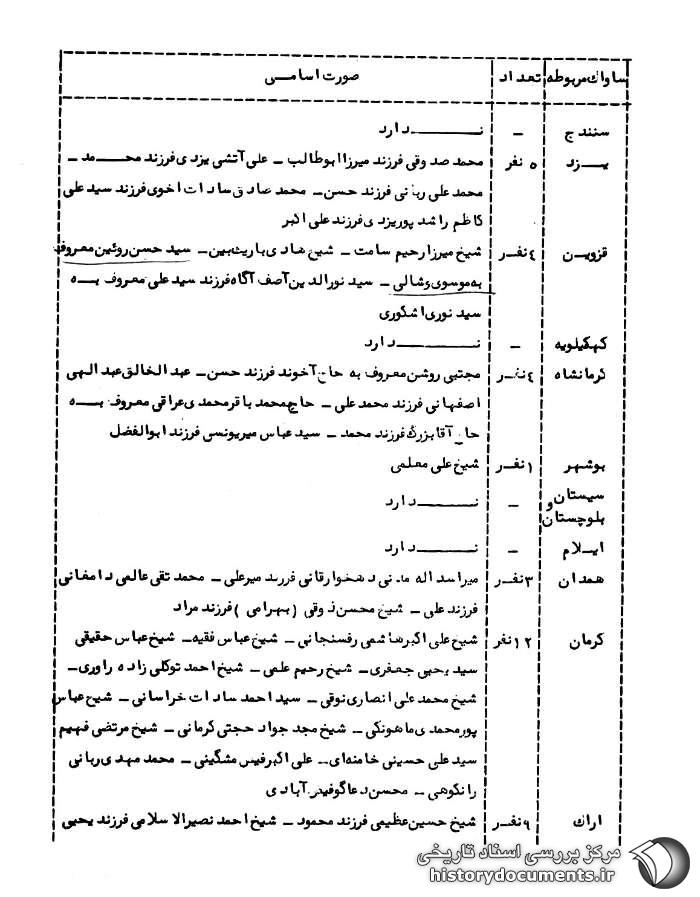 ساواک مربوطه تعداد صورت اسامی
سنندج – ندارد
یزد ۵ نفر محمد صدوقی فرزند میرزا ابوطالب – علی آتشی یزدی فرزند محمد –
محمد علی ربانی فرزند حسن – محمد صادق سادات اخوی فرزند سید علی
کاظم راشد پوریزدی فرزند علی اکبر
قزوین ٤ نفر شیخ میرزا رحیم سامت – شیخ هادی باریک‌بین – سید حسن روئین معروف
به موسوی وشالی – سید نورالدین آصف آگاه فرزند سید علی معروف به
سید نوری اشکوری
کهکیلویه – ندارد
کرمانشاه ٤ نفر مجتبی روشن معروف به حاج آخوند فرزند حسن – عبدالخالق عبدالهی
اصفهانی فرزند محمد علی – حاج محمد باقر محمدی عراقی معروف به
حاج آقا بزرگ فرزند محمد – سید عباس میریونسی فرزند ابوالفضل
بوشهر ۱ نفر شیخ علی معلمی
سیستان و بلوچستان – ندارد
ایلام – ندارد
همدان ۳ نفر میراسداله مدنی دهخوارقانی فرزند میرعلی – محمد تقی عالمی دامغانی
فرزند علی – شیخ محسن ذوقی (بهرامی) فرزند مراد
کرمان ۱۲ نفر شیخ علی اکبر هاشمی رفسنجانی – شیخ عباس فقیه – شیخ عباس حقیقی
سید یحیی جعفری – شیخ رحیم علمی – شیخ احمد توکلی زاده راوری –
شیخ محمد علی انصاری نوقی – سید احمد سادات خراسانی – شیخ عباس
پورمحمدی ماهونکی – شیخ مجد جواد حجتی کرمانی – شیخ مرتضی فهیم
سید علی حسینی خامنه‌ای – علی اکبر فیض مشگینی – محمد مهدی ربانی
رانکوهی – محسن دعاگو فیض آبادی
اراک ۹ نفر شیخ حسین عظیمی فرزند محمود – شیخ احمد نصیرالاسلامی فرزند یحیی
مرکز بررسی اسناد تاریخی
historydocuments.ir